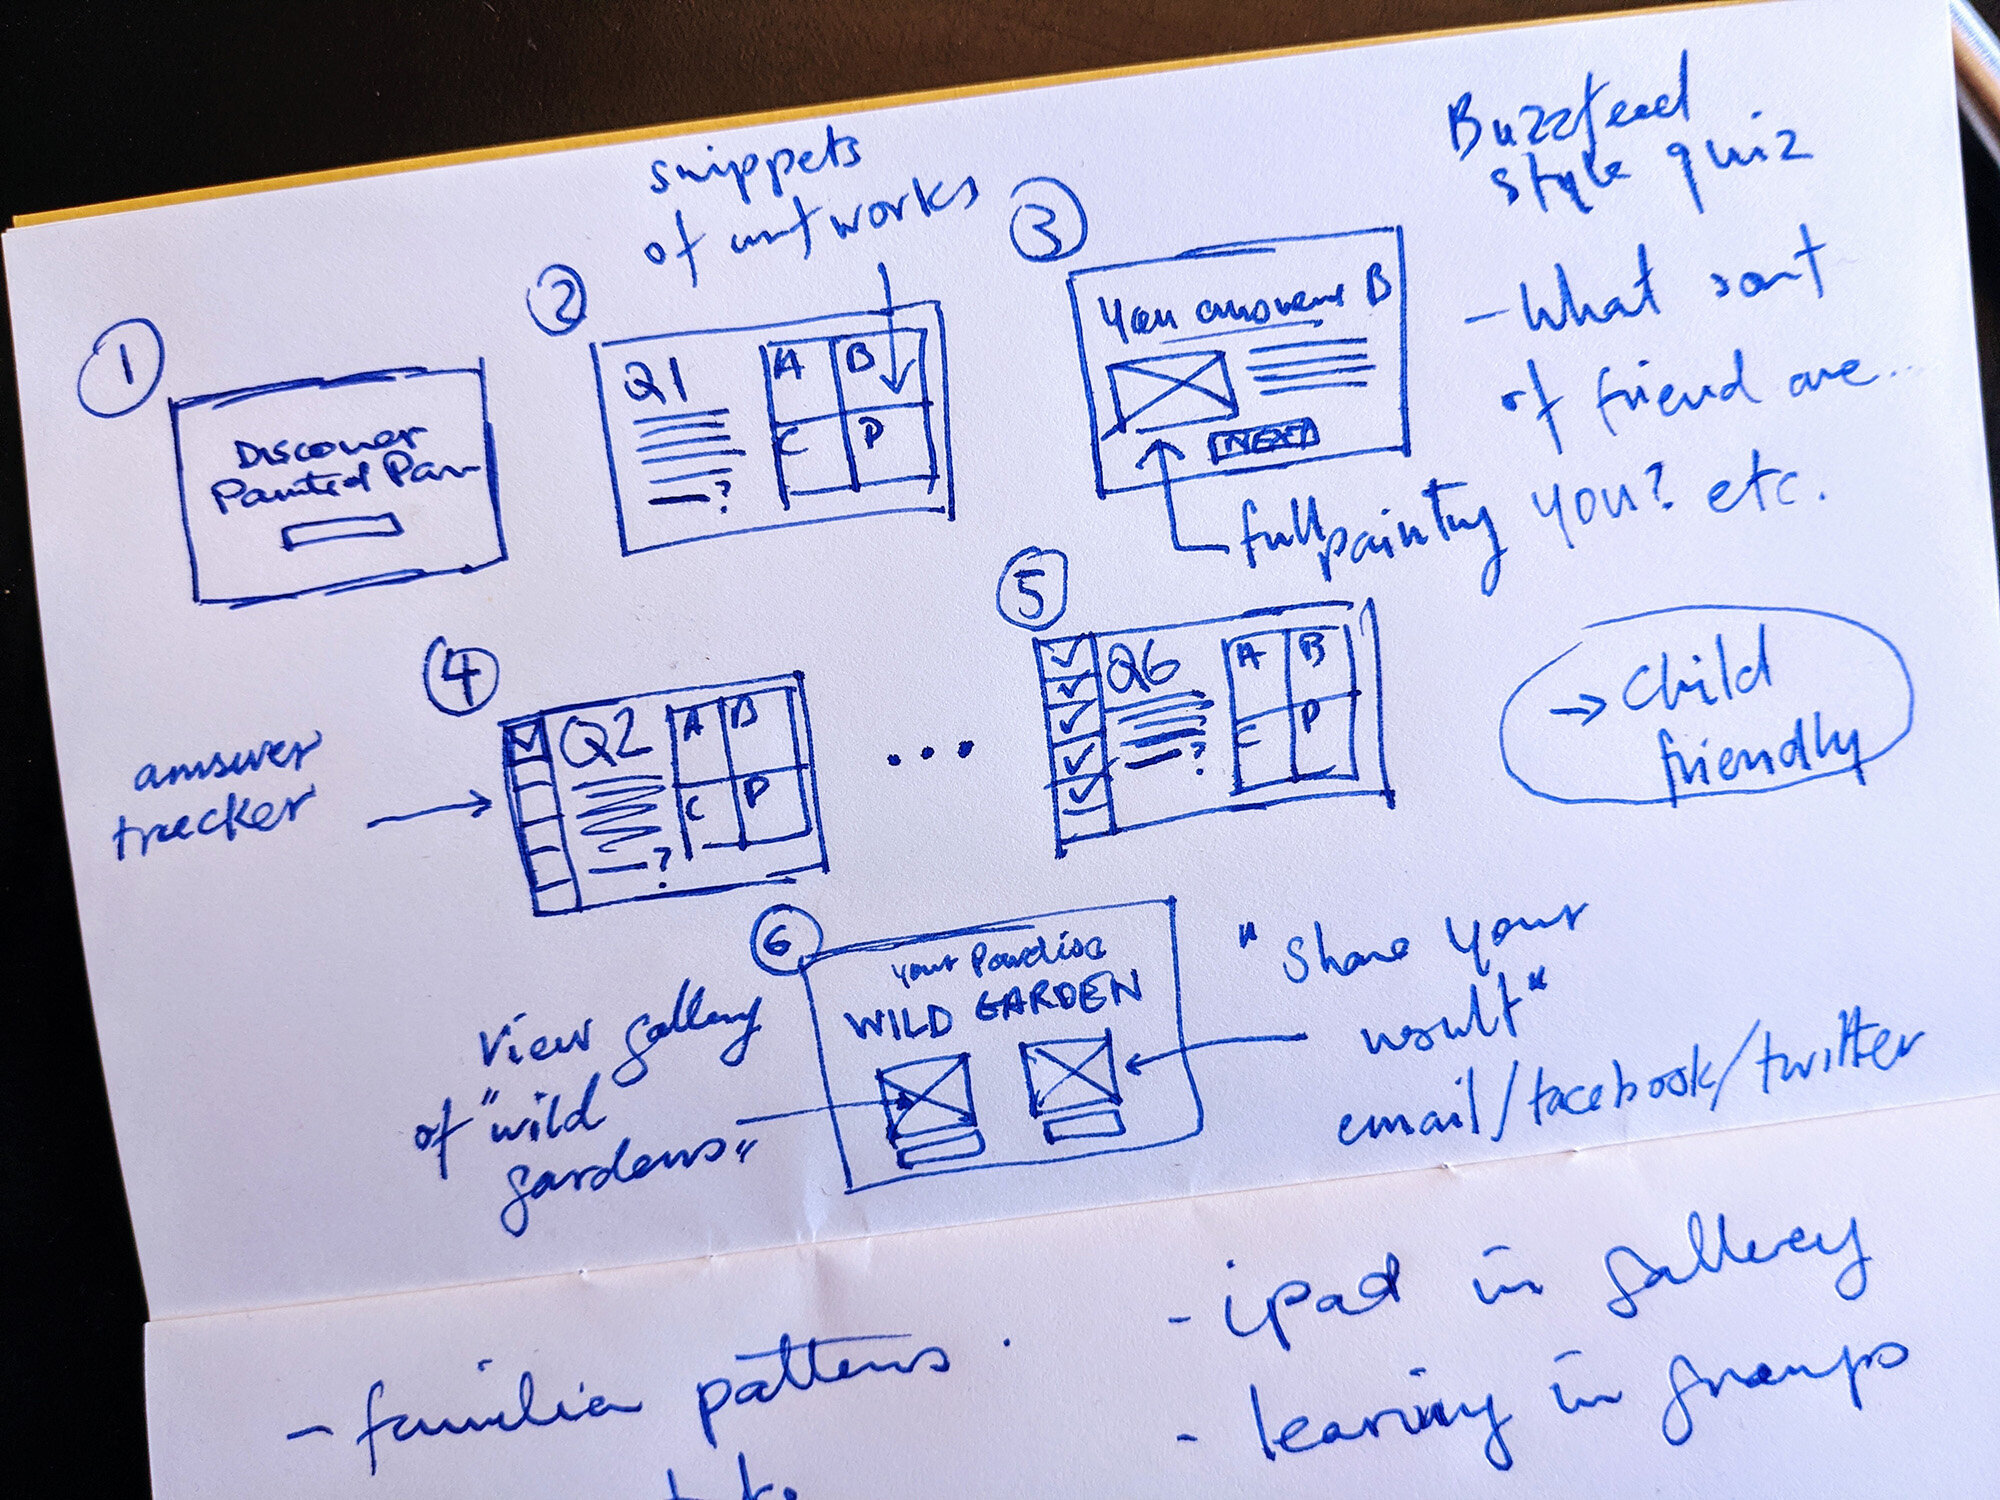 Buzzfeed
style quiz
- What sort
of friend are...
you? etc.
→ Child
friendly
snippets
of artworks
1
Discover
Painted Par
2
Q1
?
A B
C D
3
You answered B
NEXT
full
painting
4
answer
tracker
Q2
?
A B
C D
...
5
Q6
?
A B
C D
6
Your Paradise
WILD GARDEN
View gallery
of "wild
gardens"
"Share your
result"
email/facebook/twitter
- familiar patterns
- ipad in gallery
- learning in groups